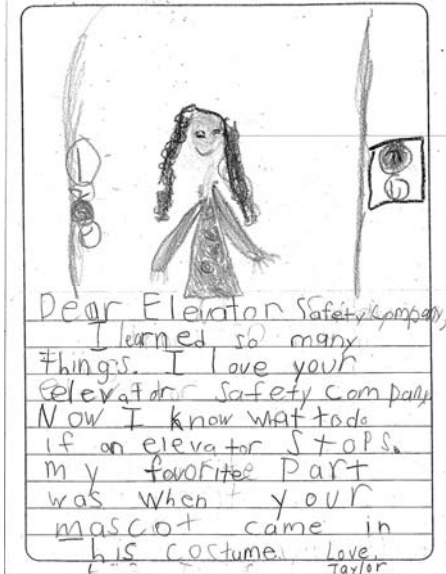 Dear Elevator Safety Company,
I learned so many
things. I love your
eelevator safety company
Now I know what todo
if an elevator stops.
my favoritee part
was when your
mascot came in
his costume. Love,
Taylor